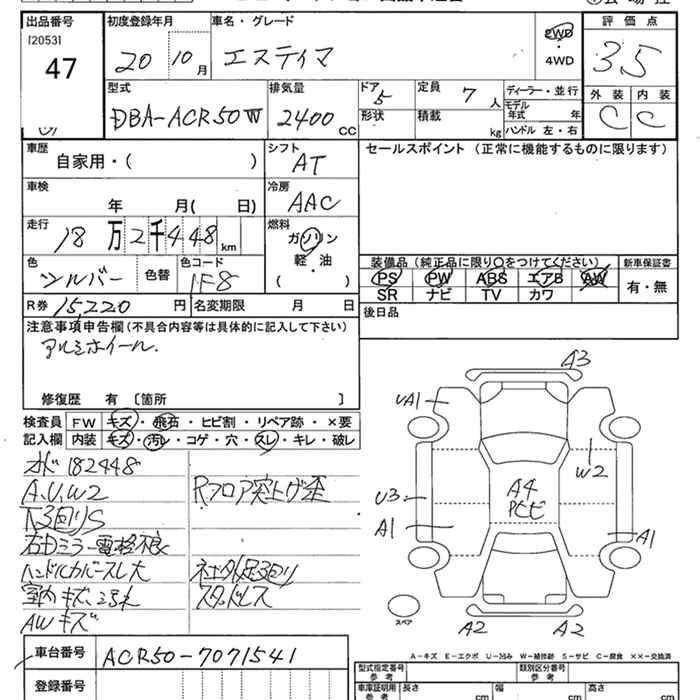 出品番号
[2053]
47
初度登録年月
20 10 月
車名・グレード
エスティマ
2WD
・
4WD
評価点
3.5
外装 内装
C C
型式
DBA-ACR50W
排気量
2400 CC
ドア
5
形状
定員
7 人
積載
kg
ディーラー・並行
モデル年式 年
ハンドル 左・右
車歴
自家用・( )
シフト
AT
セールスポイント (正常に機能するものに限ります)
車検
年 月( 日)
冷房
AAC
走行
18万2千448 km
燃料
ガソリン
軽・油
( )
色
シルバー
色替
色コード
1F8
装備品 (純正品に限り○をつけてください)
PS PW ABS エアB AW
SR ナビ TV カワ
新車保証書
有・無
R券 15,220 円
名変期限 月 日
後日品
注意事項申告欄(不具合内容等は具体的に記入して下さい)
アルミホイール.
修復歴 有 〔箇所 〕
検査員記入欄
FW キズ・飛石・ヒビ割・リペア跡・×要
内装 キズ・汚レ・コゲ・穴・スレ・キレ・破レ
182448
A.U.W2
下回りS
右Dミラー電格不良
ハンドルカバースレ大
室内キズ.汚れ
AWキズ
Rフロア突上げ歪
スタッドレス
A3
UA1
W2
U3
A4
トビ
A1
A1
A2
A2
スペア
A-キズ E-エクボ U-凹み W-補修跡 S-サビ C-腐食 ××-交換済
車台番号
ACR50-7071541
登録番号
型式指定番号
参考
類別区分番号
参考
車庫証明用
参考
長さ cm
幅 cm
高さ cm